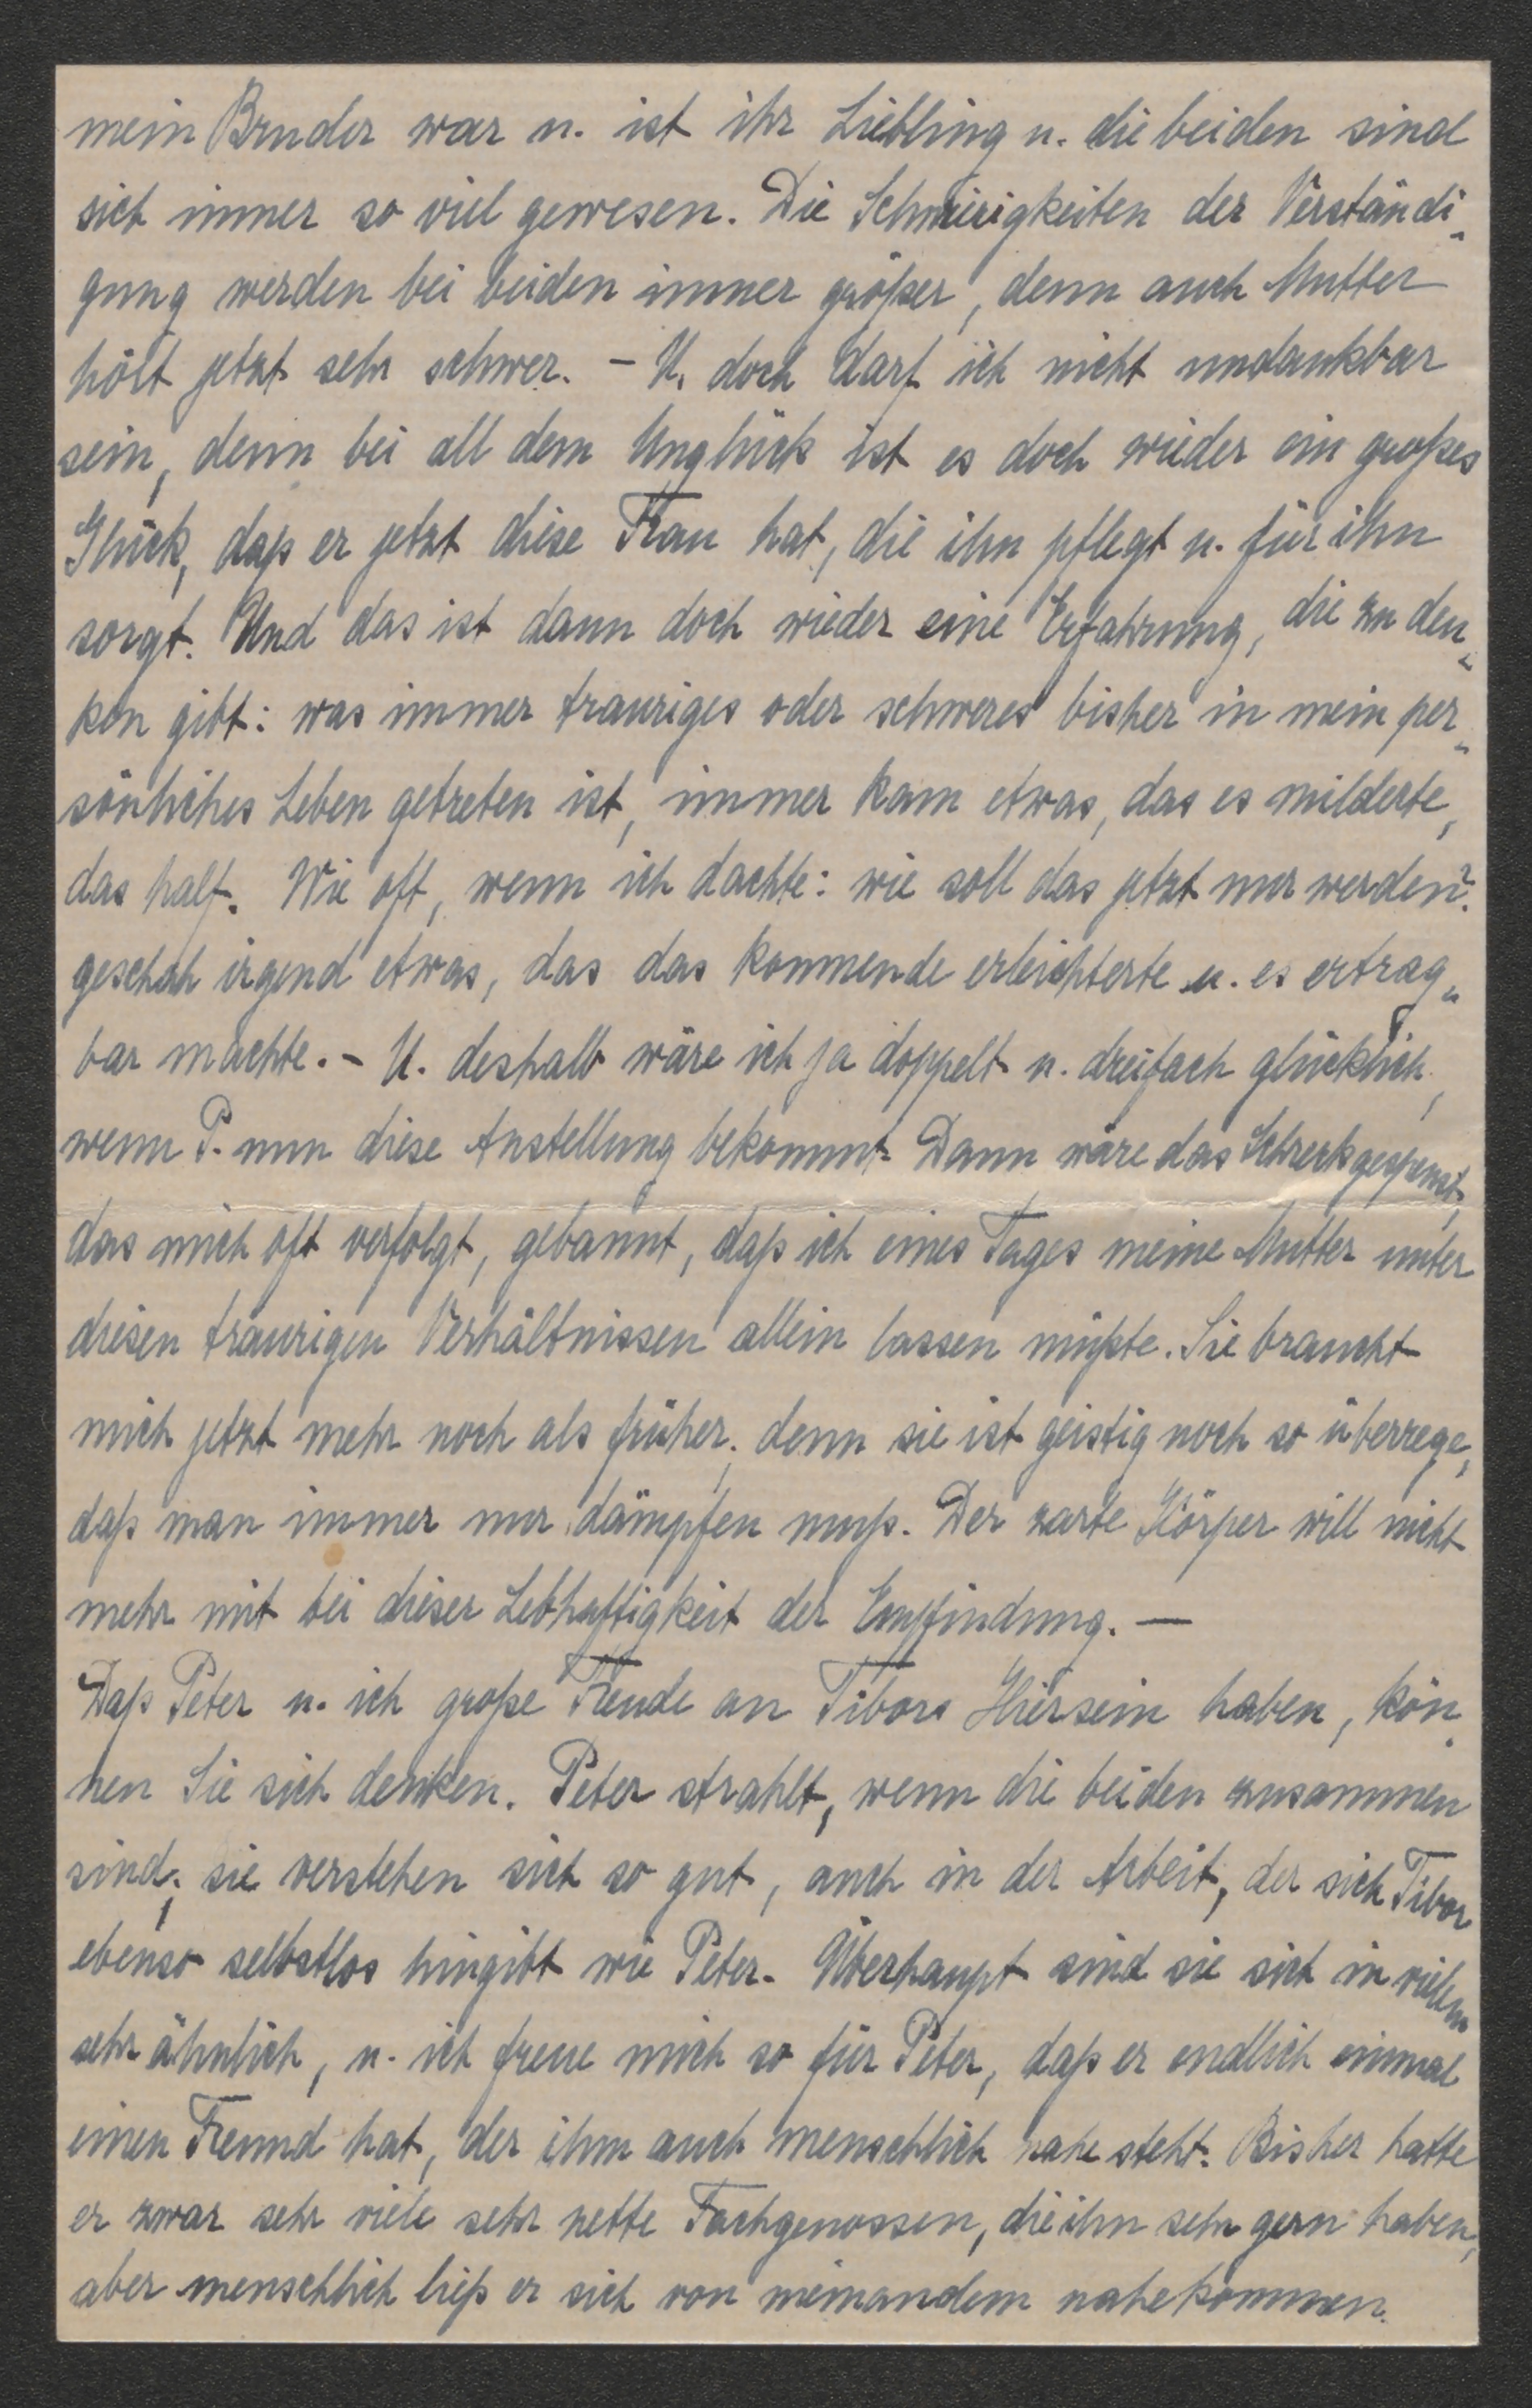 mein Bruder war u. ist ihr Liebling u. die beiden sind
sich immer so viel gewesen. Die Schwierigkeiten der Verständi-
gung werden bei beiden immer größer, denn auch Mutter
hört jetzt sehr schwer. – U. doch darf ich nicht undankbar
sein, denn bei all dem Unglück ist es doch wieder ein großes
Glück, daß er jetzt diese Frau hat, die ihn pflegt u. für ihn
sorgt. Und das ist dann doch wieder eine Erfahrung, die zu den-
ken gibt: was immer trauriges oder schweres bisher in mein per-
sönliches Leben getreten ist, immer kam etwas, das es milderte,
das half. Wie oft, wenn ich dachte: wie soll das jetzt nur werden?
geschah irgend etwas, das das kommende erleichterte u. es ertrag-
bar machte. – U. deshalb wäre ich ja doppelt u. dreifach glücklich,
wenn P. nun diese Anstellung bekommt. Dann wäre das Schreckgespenst,
das mich oft verfolgt, gebannt, daß ich eines Tages meine Mutter unter
diesen traurigen Verhältnissen allein lassen müßte. Sie braucht
mich jetzt mehr noch als früher, denn sie ist geistig noch so überrege,
daß man immer nur dämpfen muß. Der zarte Körper will nicht
mehr mit bei dieser Lebhaftigkeit der Empfindung. —
Daß Peter u. ich große Freude an Tibors Hiersein haben, kön-
nen Sie sich denken. Peter strahlt, wenn die beiden zusammen
sind; sie verstehen sich so gut, auch in der Arbeit, der sich Tibor
ebenso selbstlos hingibt wie Peter. Überhaupt sind sie sich in vielem
sehr ähnlich, u. ich freue mich so für Peter, daß er endlich einmal
einen Freund hat, der ihm auch menschlich nahe steht. Bisher hatte
er zwar sehr viele sehr nette Fachgenossen, die ihn sehr gern haben,
aber menschlich ließ er sich von niemandem nahekommen.